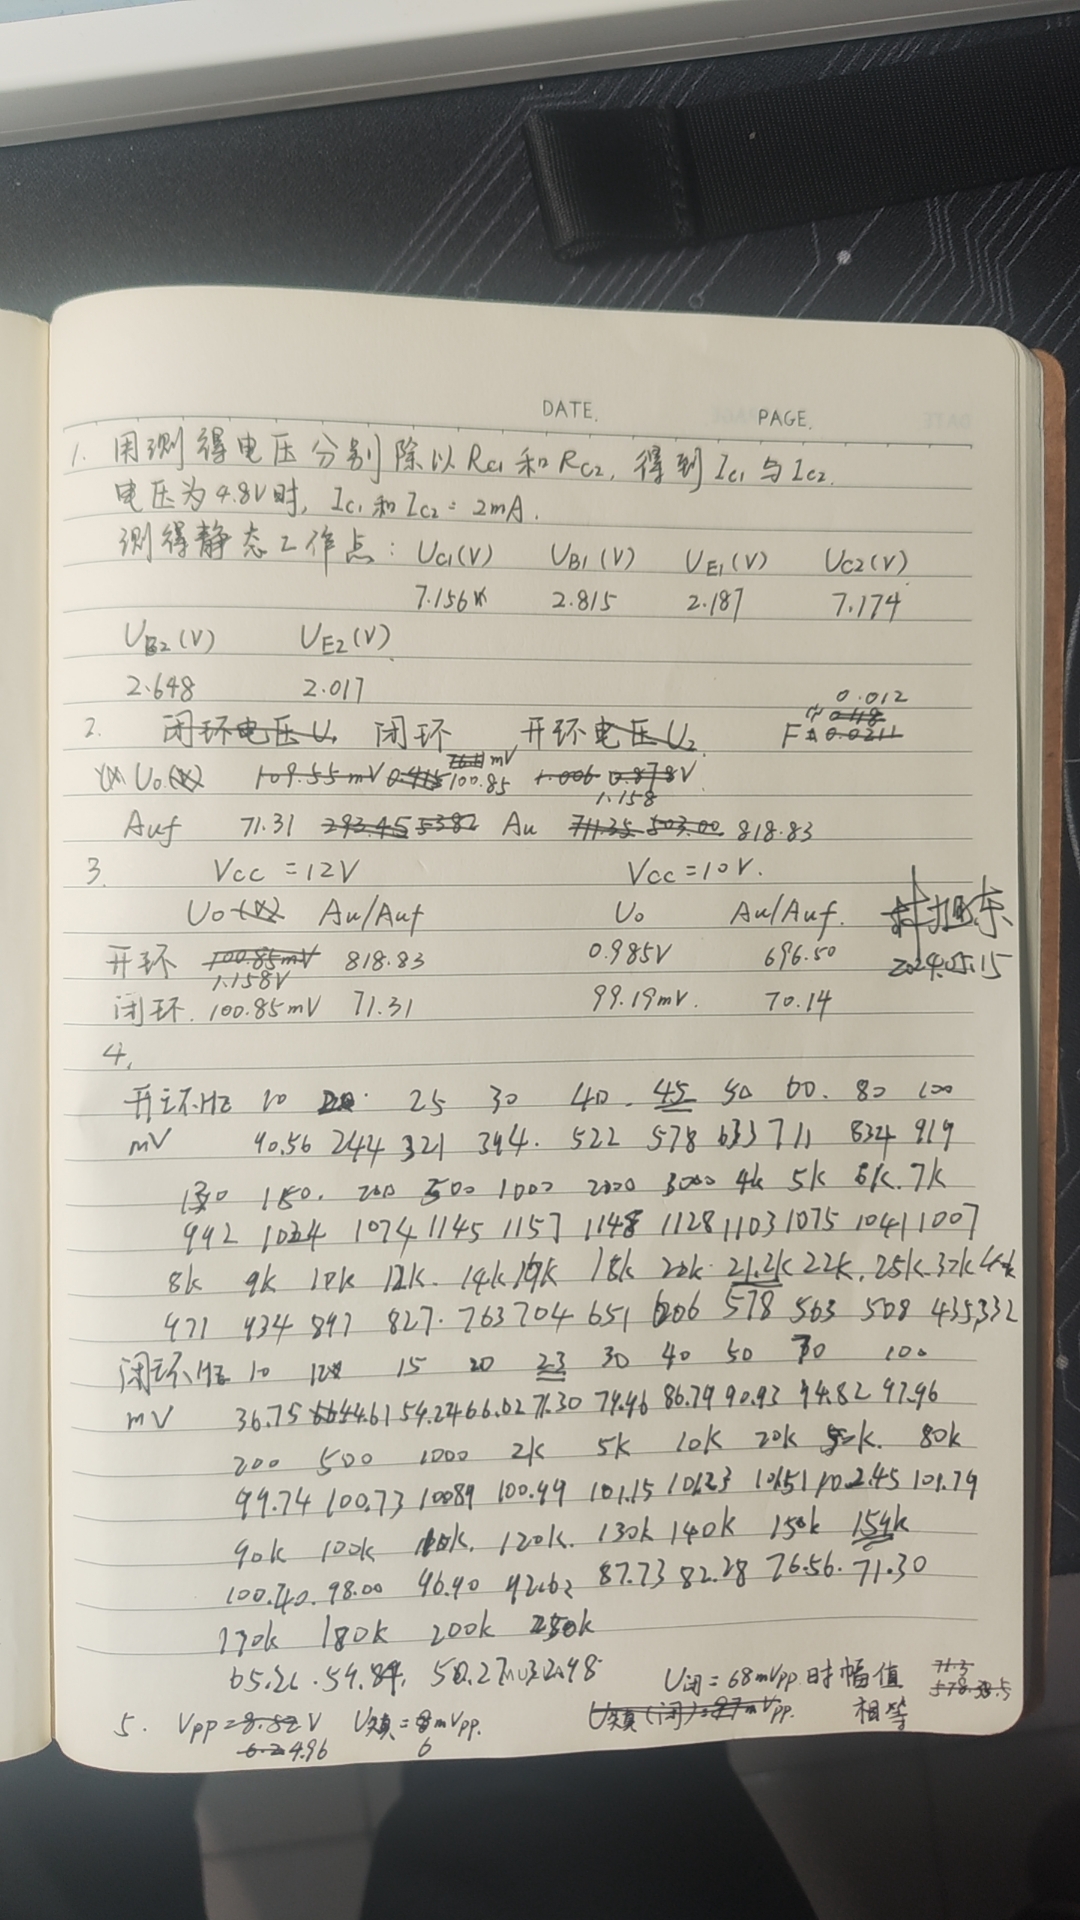 DATE. PAGE.
1. 用测得电压分别除以 RC1 和 RC2, 得到 IC1 与 IC2.
电压为4.8V时, IC1 和 IC2 = 2mA.
测得静态工作点: UC1(V) UB1(V) UE1(V) UC2(V)
7.156 2.815 2.187 7.174
UB2(V) UE2(V)
2.648 2.017
0.012
2. 闭环电压U1 闭环 开环电压U2 F 0.0211
U0 109.55mV 0.415 100.85 mV 1.006 0.878V
1.158
Auf 71.31 293.45 5382 Au 711.35 503.00 818.83
3. Vcc = 12V Vcc = 10V.
U0(V) Au/Auf U0 Au/Auf.
开环 100.85mV 818.83 0.985V 696.50
1.158V 2024.05.15
闭环. 100.85mV 71.31 99.19mV. 70.14
4.
开环Hz 10 20 25 30 40 45 50 60. 80 100
mV 90.56 244 321 394. 522 578 633 711 834 919
130 150. 200 500 1000 2000 3000 4k 5k 6k. 7k
992 1024 1074 1145 1157 1148 1128 1103 1075 1041 1007
8k 9k 10k 12k. 14k 16k 18k 20k 21.2k 22k. 25k. 32k
971 934 897 827. 763 704 651 606 578 563 508 435 332
闭环Hz 10 12 15 20 23 30 40 50 70 100
mV 36.75 44.61 54.24 66.62 71.30 79.46 86.79 90.93 94.82 97.96
200 500 1000 2k 5k 10k 20k 50k. 80k
99.74 100.73 100.89 100.99 101.15 101.23 101.51 102.45 101.79
90k 100k 110k. 120k. 130k 140k 150k 159k
100.40. 98.00 96.90 92.62 87.73 82.28 76.56. 71.30
170k 180k 200k 250k
65.26. 59.84. 50.27 32.98 U闭 = 68mVpp 时幅值 71.3
5. Vpp = 8.82V U失真 = mVpp. U失真(闭) = 87mVpp. 相等
6.2 4.96 6